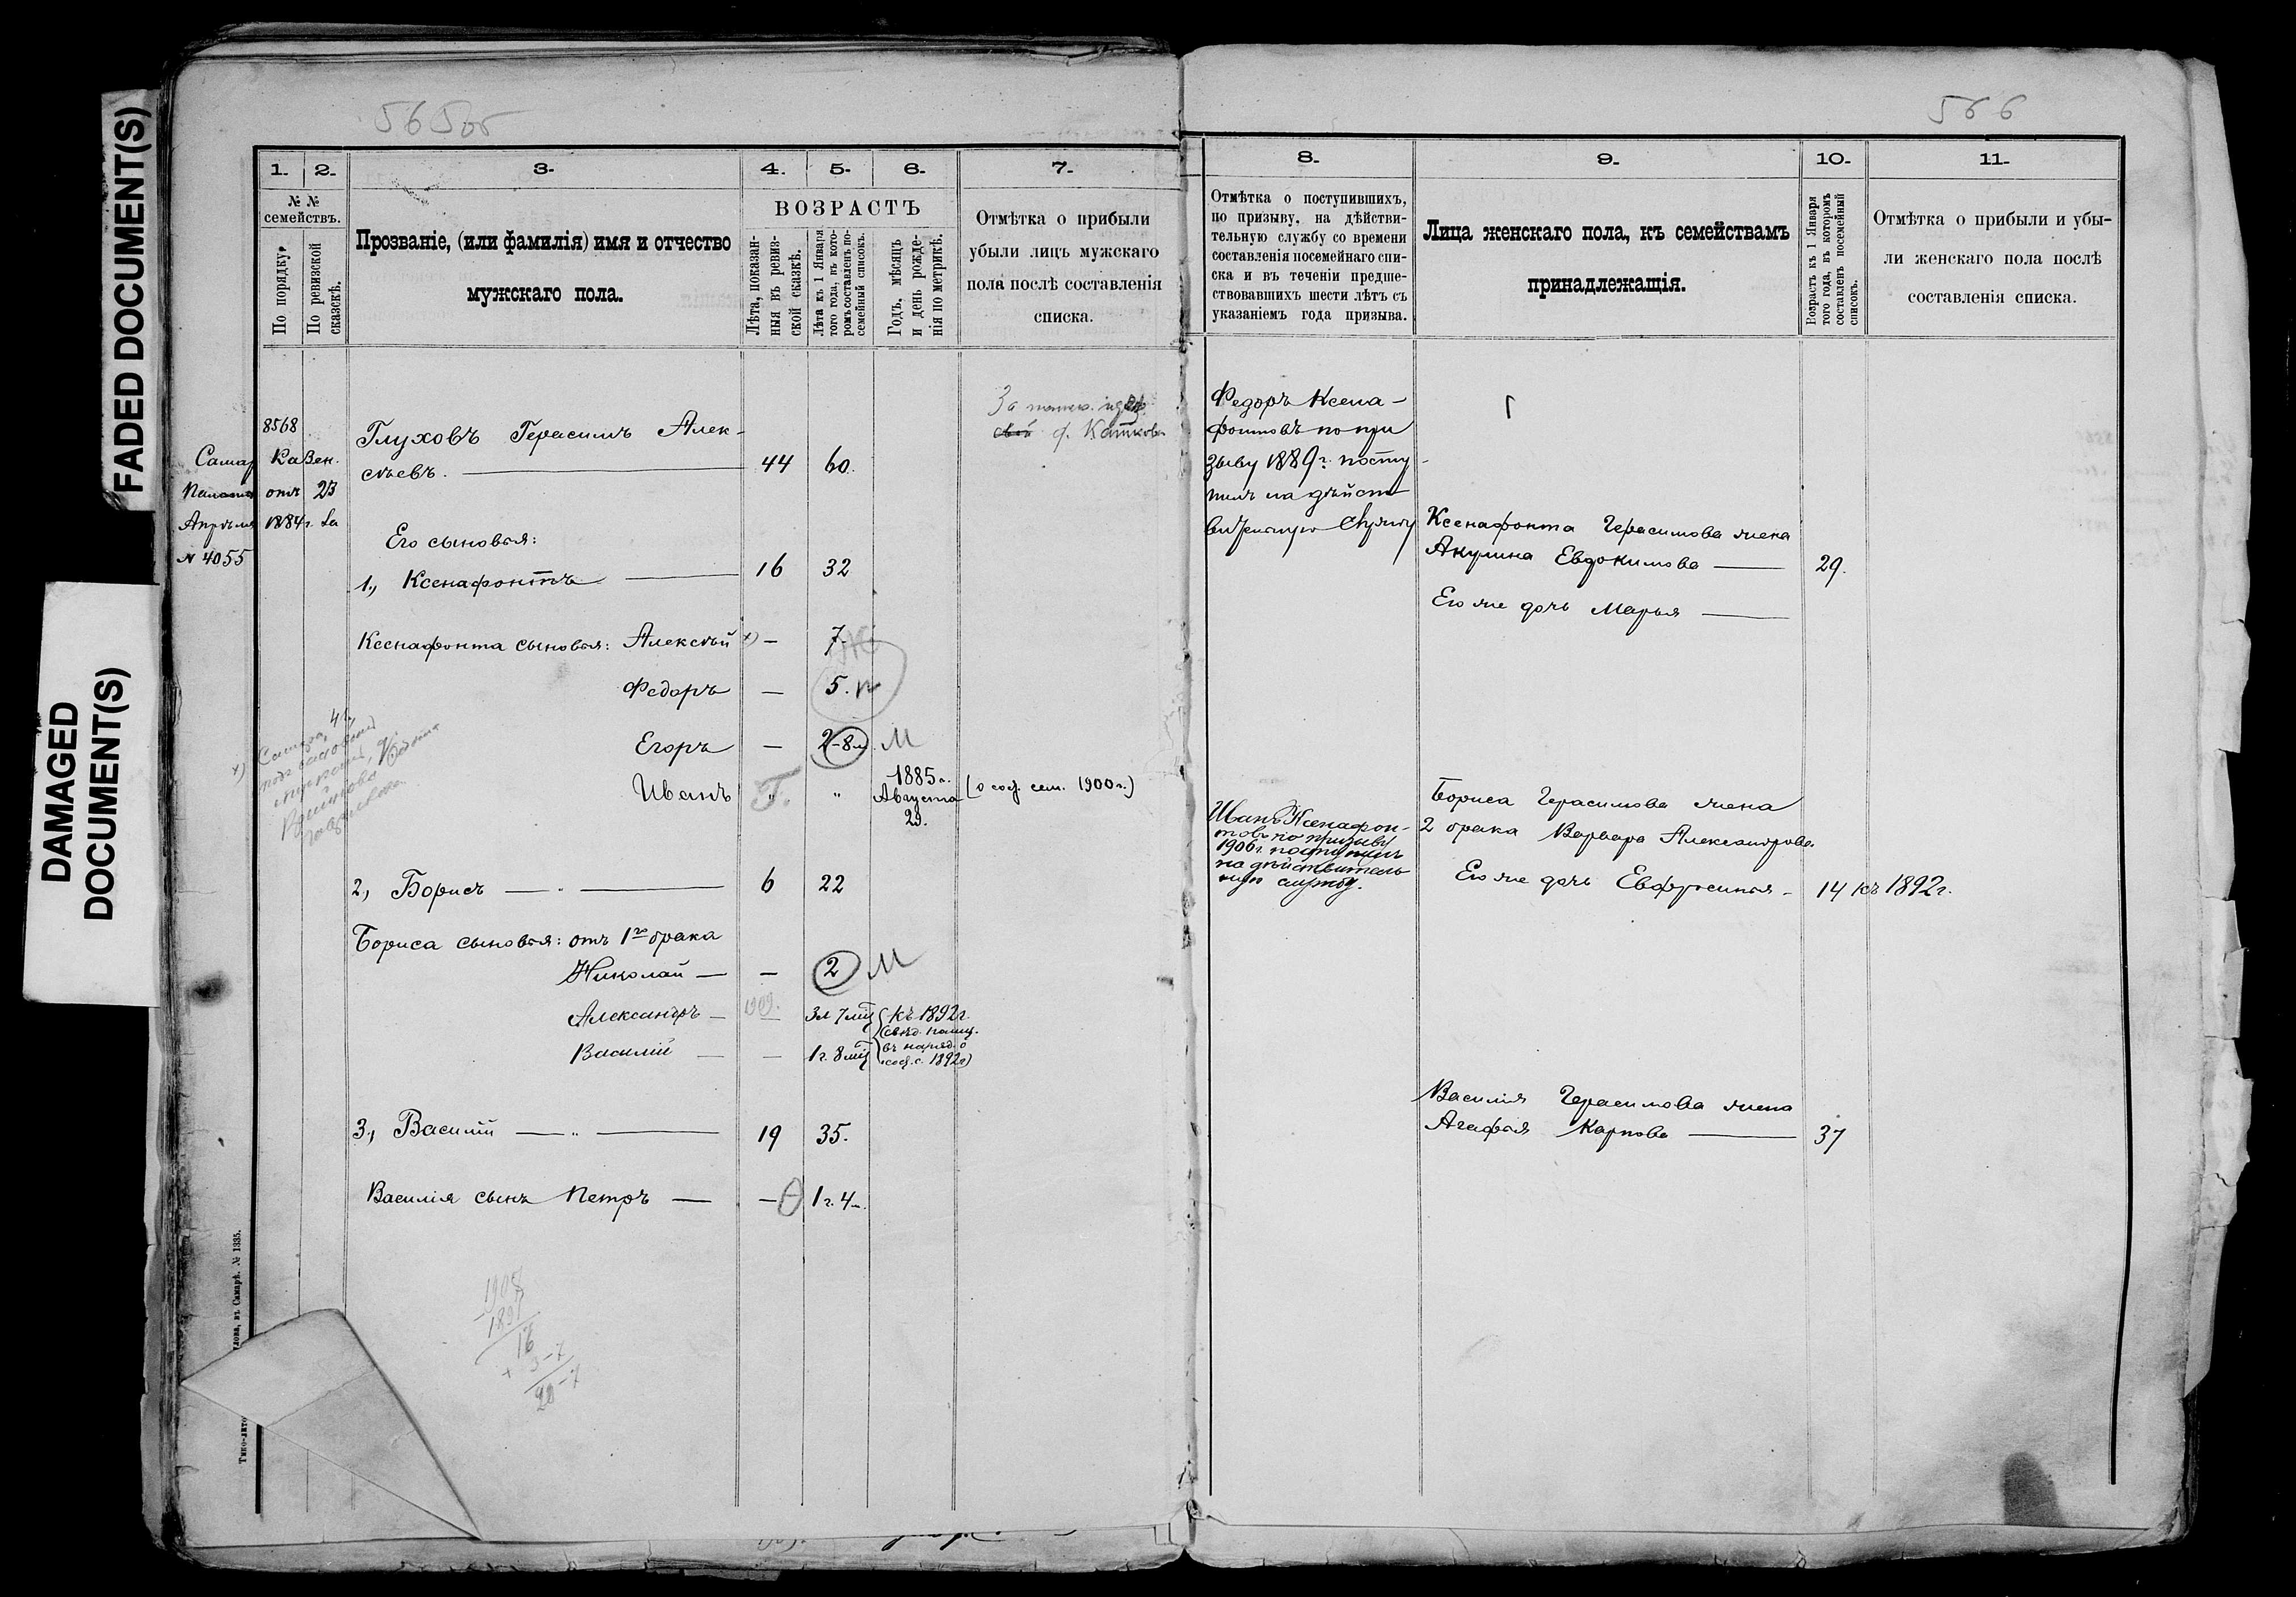 FADED DOCUMENT(S)
DAMAGED
DOCUMENT(S)
565об
566
1.
2.
3.
4.
5.
6.
7.
№ №
семействъ.
По порядку.
По ревизской
сказскѣ.
Прозваніе, (или фамилія) имя и отчество
мужскаго пола.
ВОЗРАСТЪ
Лѣта, показан-
ныя въ ревиз-
ской сказкѣ.
Лѣта къ 1 Января
того года, въ кото-
ромъ составленъ по-
семейный списокъ.
Годъ, мѣсяцъ
и день рожде-
нія по метрикѣ.
Отмѣтка о прибыли
убыли лицъ мужскаго
пола послѣ составленія
списка.
8568
Самар Казен.
Палаты отъ 23
Апрѣля 1884 г. за
№ 4055
Глуховъ Герасимъ Алек-
сѣевъ. 44 60.
ф.
Его сыновья:
1., Ксенафонтъ 16 32
Ксенафонта сыновья: Алексѣй х) — 7.
Федоръ — 5.
Егоръ — 2-8м. М
Иванъ Г. „ 1885 г.
Августа
29.
(о соч. сем. 1900 г.)
2., Борисъ — „ — 6 22
Бориса сыновья: отъ 1го брака
Николай — — 2 М
Александръ — 1909. 3л 7мц къ 1892 г.
Василій — — 1 г. 8мц
1892 г)
3., Василій — „ — 19 35.
Василія сынъ Петръ — — 1 г. 4м.
1908
1891
16
+ 3-7
20-7
въ Самарѣ. № 1335.
8.
9.
10.
11.
Отмѣтка о поступившихъ,
по призыву, на дѣйстви-
тельную службу со времени
составленія посемейнаго спи-
ска и въ теченіи предше-
ствовавшихъ шести лѣтъ съ
указаніемъ года призыва.
Лица женскаго пола, къ семействамъ
принадлежащія.
Возрастъ къ 1 Января
того года, въ которомъ
составленъ посемейный
списокъ.
Отмѣтка о прибыли и убы-
ли женскаго пола послѣ
составленія списка.
Федоръ Ксена-
фонтовъ по при
зыву 1889 г. посту-
пилъ на дѣйст
вительную службу
Ксенафонта Герасимова жена
Акулина Евдокимова — 29.
Его же дочь Марья —
Иванъ Ксенафон-
товъ по призыву
1906 г. поступилъ
на дѣйствитель
ную службу.
Бориса Герасимова жена
2 брака Варвара Александрова.
Его же дочь Евфросинья - 14 къ 1892 г.
Василія Герасимова жена
Агафья Карпова — 37